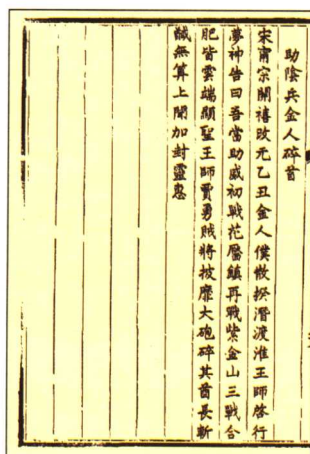 助陰兵金人碎首
宋甯宗開禧改元乙丑金人僕散揆潛渡淮王師啓行
夢神告曰吾當助威初戰花靨鎮再戰紫金山三戰合
肥皆雲端顯聖王師賈勇賊將披靡大砲碎其酋長斬
馘無算上聞加封靈惠